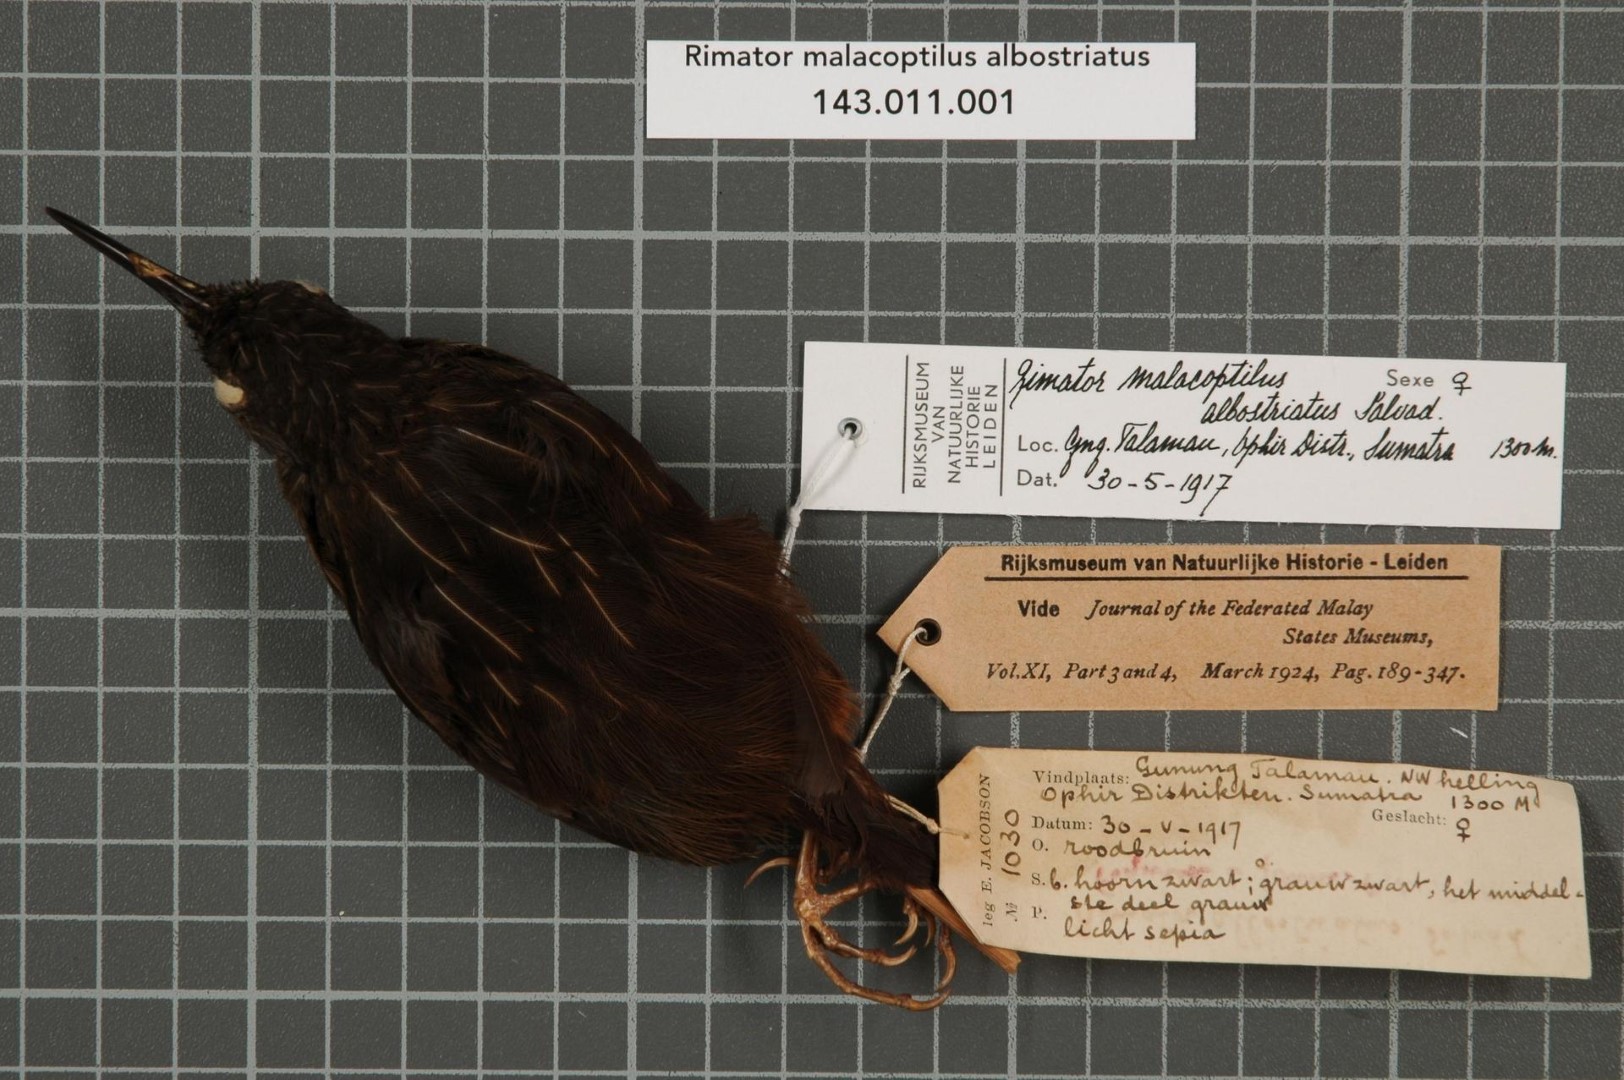 Rimator malacoptilus albostriatus
143.011.001
RIJKSMUSEUM
VAN
NATUURLIJKE
HISTORIE
LEIDEN
Rimator malacoptilus Sexe ♀
albostriatus Salvad.
Loc. Gng. Talamau, Ophir Distr., Sumatra 1300 m.
Dat. 30-5-1917
Rijksmuseum van Natuurlijke Historie - Leiden
Vide Journal of the Federated Malay
States Museums,
Vol. XI, Part 3 and 4, March 1924, Pag. 189-347.
leg E. JACOBSON
№ 1030
Vindplaats: Gunung Talamau. NW helling
Ophir Distrikten. Sumatra 1300 M
Datum: 30-V-1917 Geslacht: ♀
O. roodbruin
S. b. hoornzwart; o. grauwzwart, het middel=
ste deel grauw
P. licht sepia